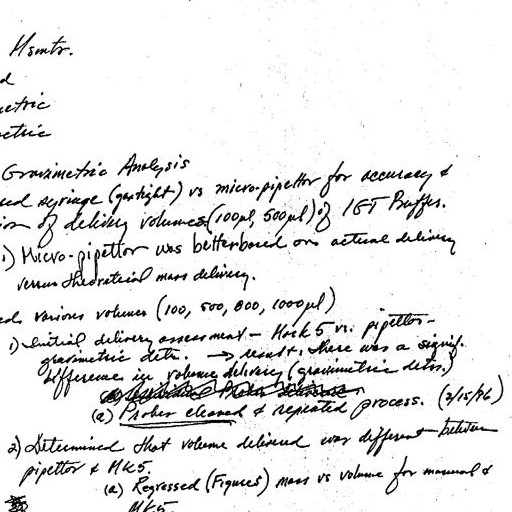 Msmts.
d
etric
etric
Gravimetric Analysis
ed syringe (gastight) vs micro-pipettor for accuracy &
ion of delivery volumes (100µl, 500µl) of IGT Buffer.
1) Micro-pipettor was better based on actual delivery
versus theoretical mass delivery.
various volumes (100, 500, 800, 1000µl)
1) Initial delivery assessment - MK5 vs. pipettor -
gravimetric detn. → result, there was a signif.
difference in volume delivery (gravimetric detn.)
(a) Probes cleaned & repeated process. (2/15/96)
2) Determined that volume delivered was different between
pipettor & MK5.
(a) Regressed (Figures) mass vs volume for manual &
MK5.